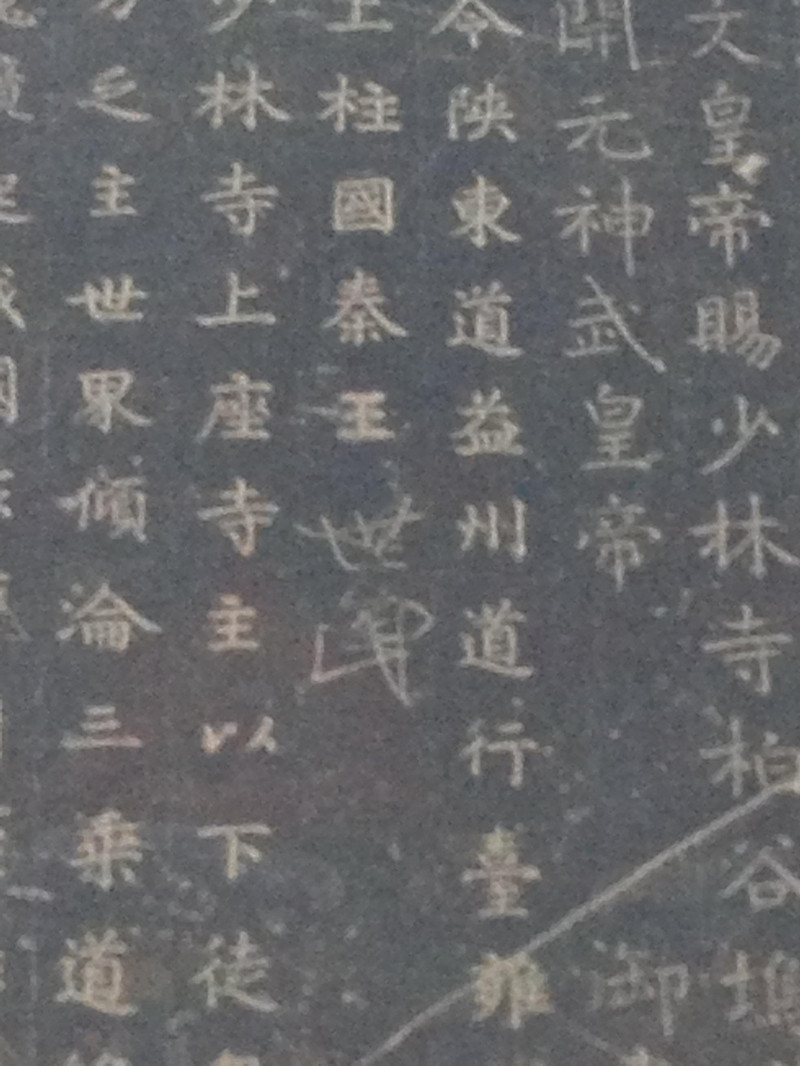 文皇帝賜少林寺柏谷塢
開元神武皇帝 御
令陝東道益州道行臺雍
上柱國秦王世民
少林寺上座寺主以下徒
方之主世界傾淪三乘道